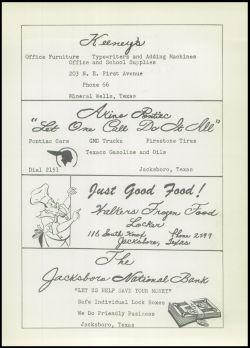 Keeney's
Office Furniture Typewriters and Adding Machines
Office and School Supplies
203 N. E. First Avenue
Phone 66
Mineral Wells, Texas
Akins Pontiac
"Let One Call Do It All"
Pontiac Cars GMC Trucks Firestone Tires
Texaco Gasoline and Oils
Dial 2151 Jacksboro, Texas
Just Good Food!
Walters Frozen Food
Locker
116 South Knox Phone 2549
Jacksboro, Texas
The
Jacksboro National Bank
"LET US HELP SAVE YOUR MONEY"
Safe Individual Lock Boxes
We Do Friendly Business
Jacksboro, Texas